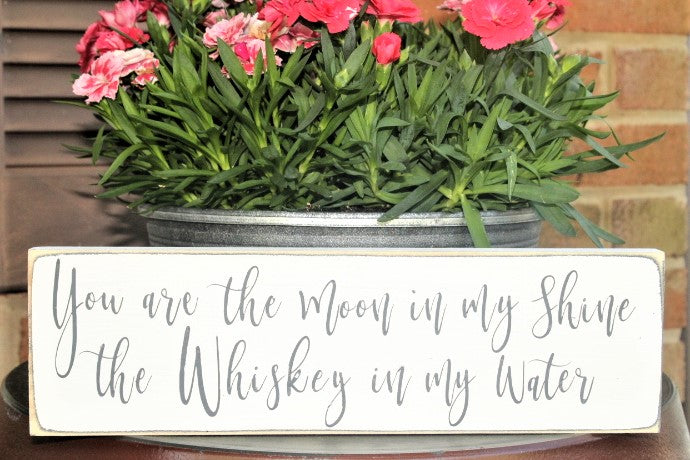 You are the Moon in my Shine
the Whiskey in my Water